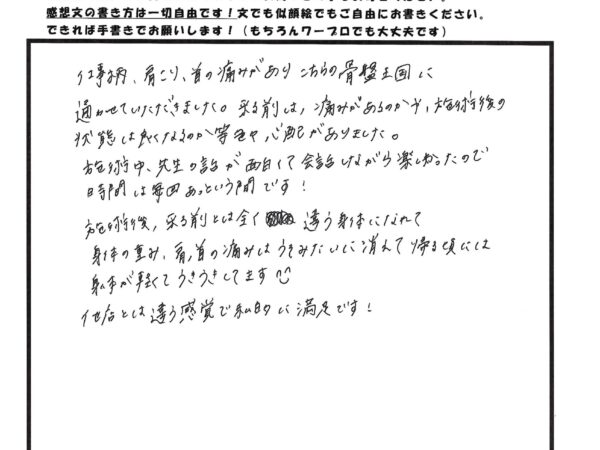 感想文の書き方は一切自由です！文でも似顔絵でもご自由にお書きください。
できれば手書きでお願いします！（もちろんワープロでも大丈夫です）
仕事柄、肩こり、首の痛みがあり こちらの骨盤王国に
通わせていただきました。来る前は、痛みがあるのかや、施術後の
状態は良くなるのか等 心配がありました。
施術中、先生の話が面白くて会話しながら楽しかったので
時間は毎回あっという間です！
施術後、来る前とは全く 違う身体になれて
身体の重み、肩、首の痛みはうそみたいに消えて帰る頃には
身体が軽くてうきうきしてます
他店とは違う感覚で私的に満足です！